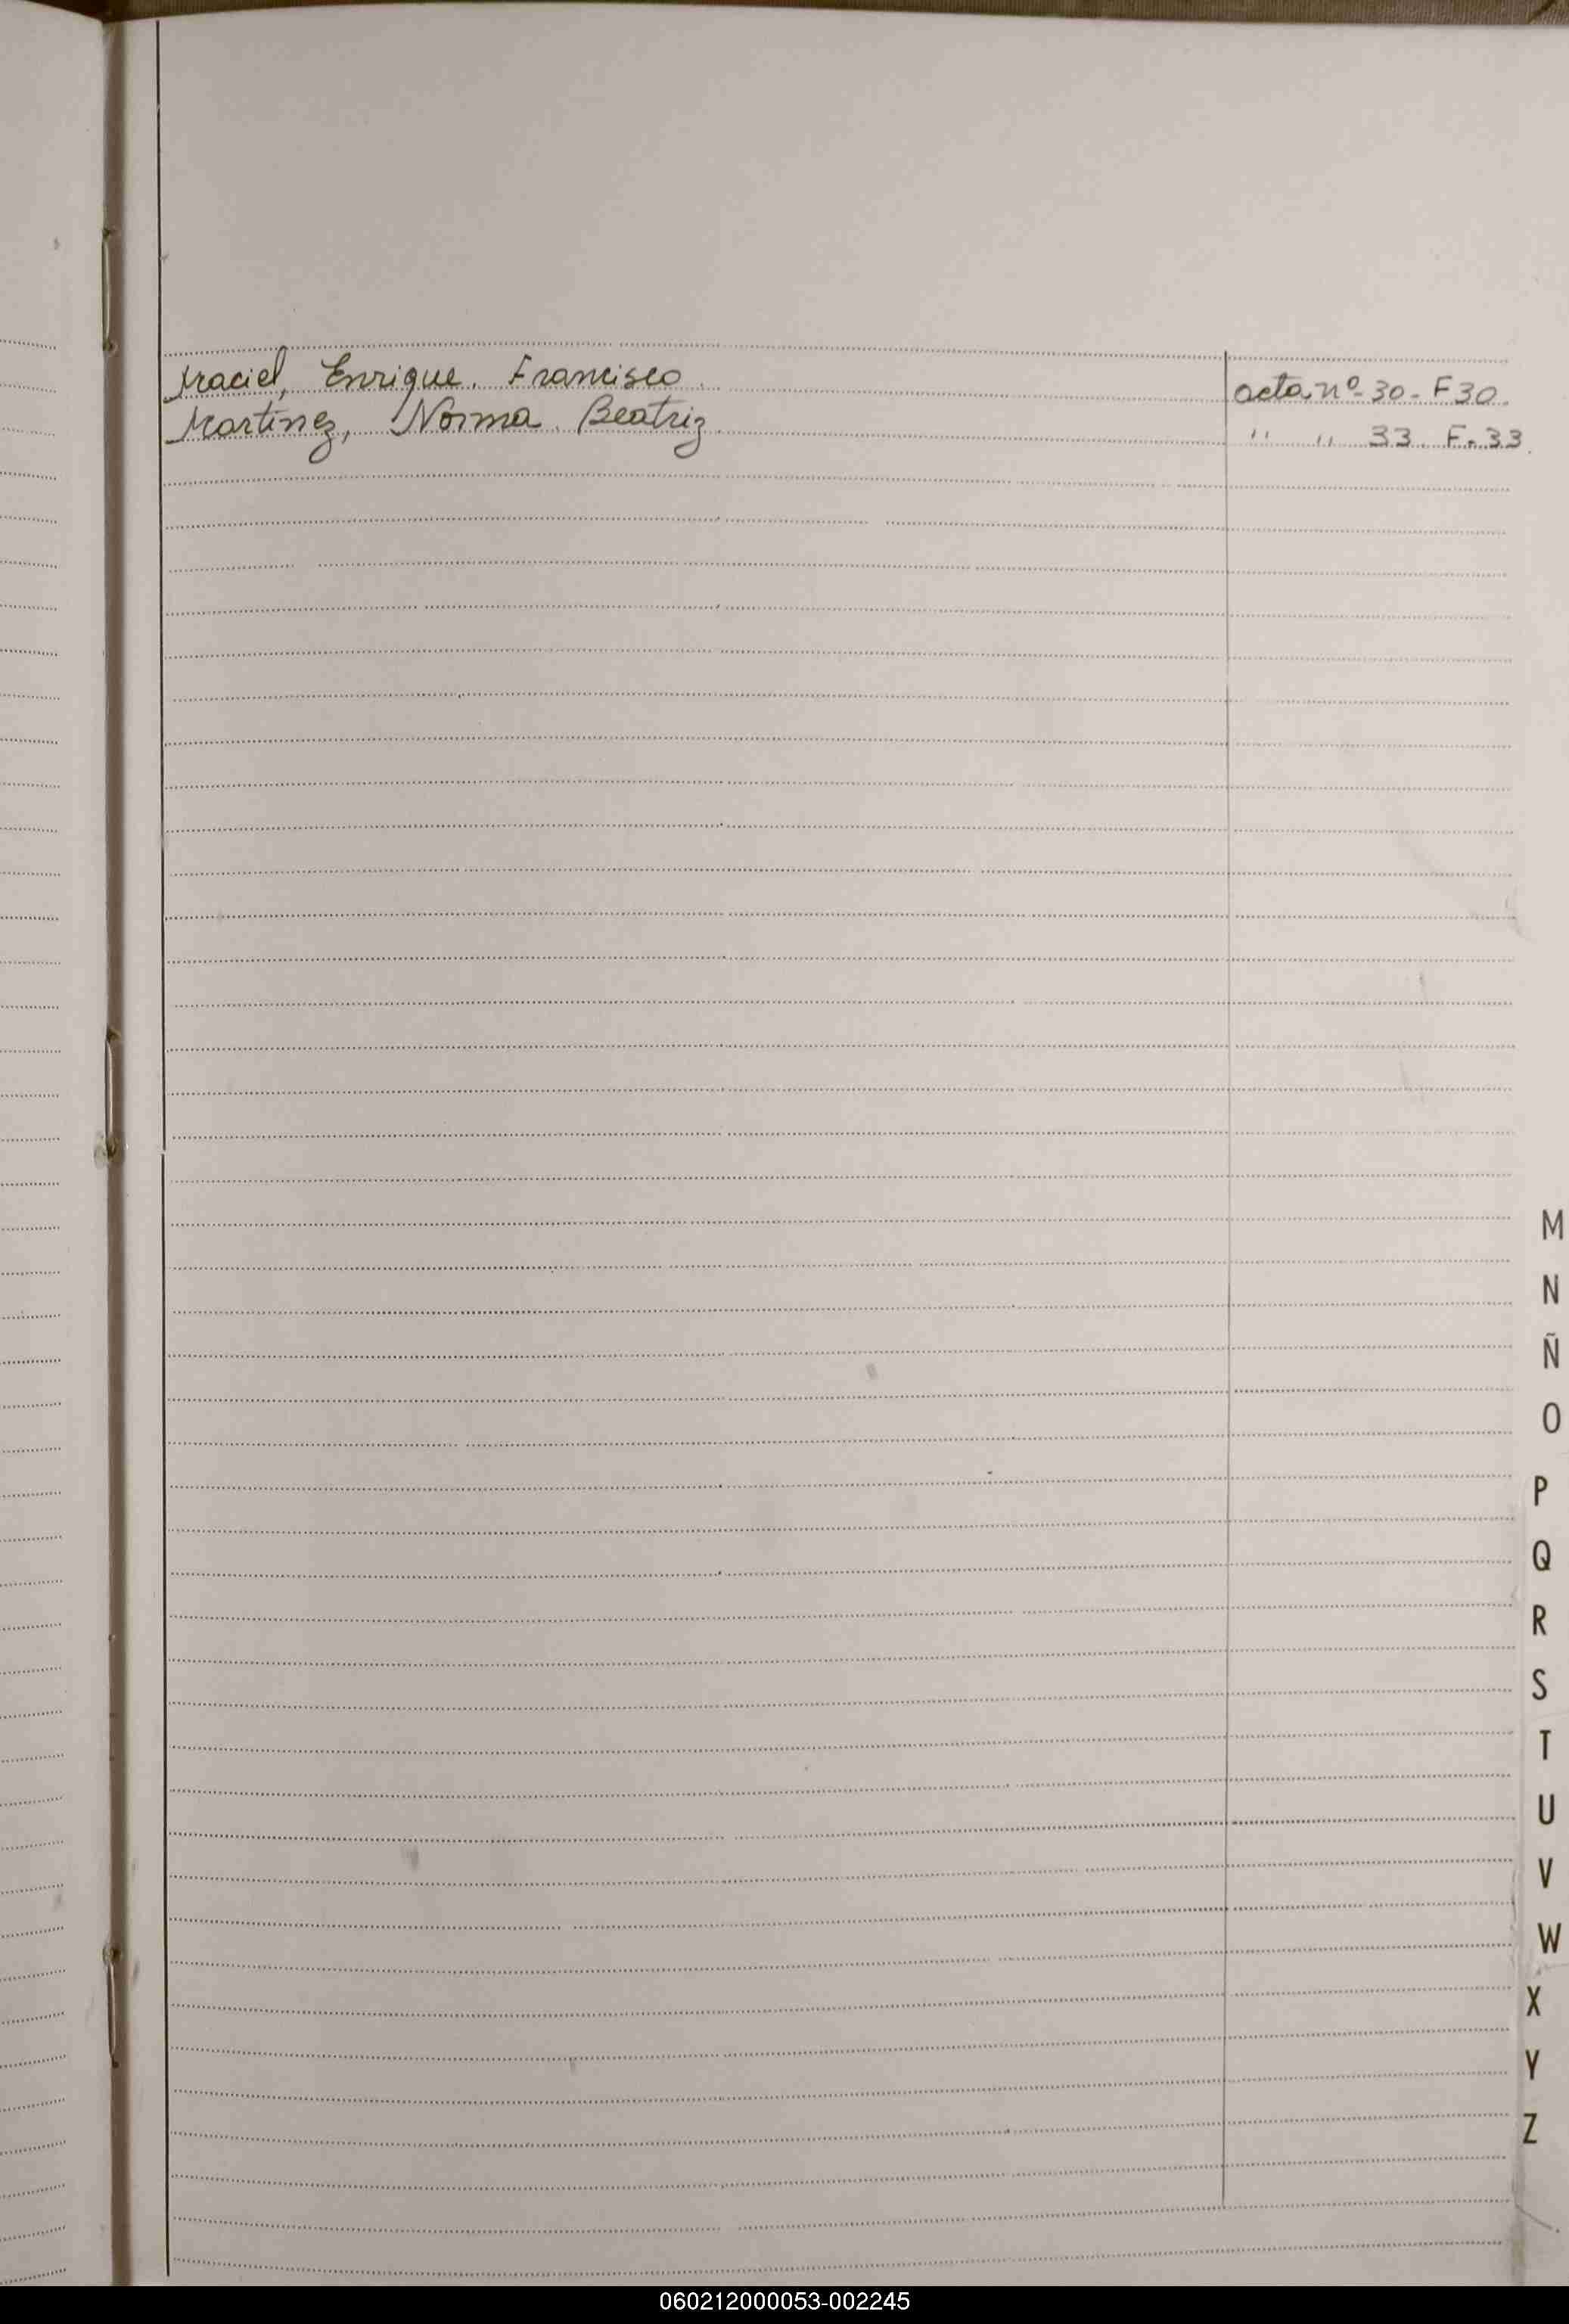 Maciel, Enrique. Francisco. acta nº 30 - F 30.
Martínez, Norma Beatriz. " " 33. F. 33.
M
N
Ñ
O
P
Q
R
S
T
U
V
W
X
Y
Z
060212000053-002245